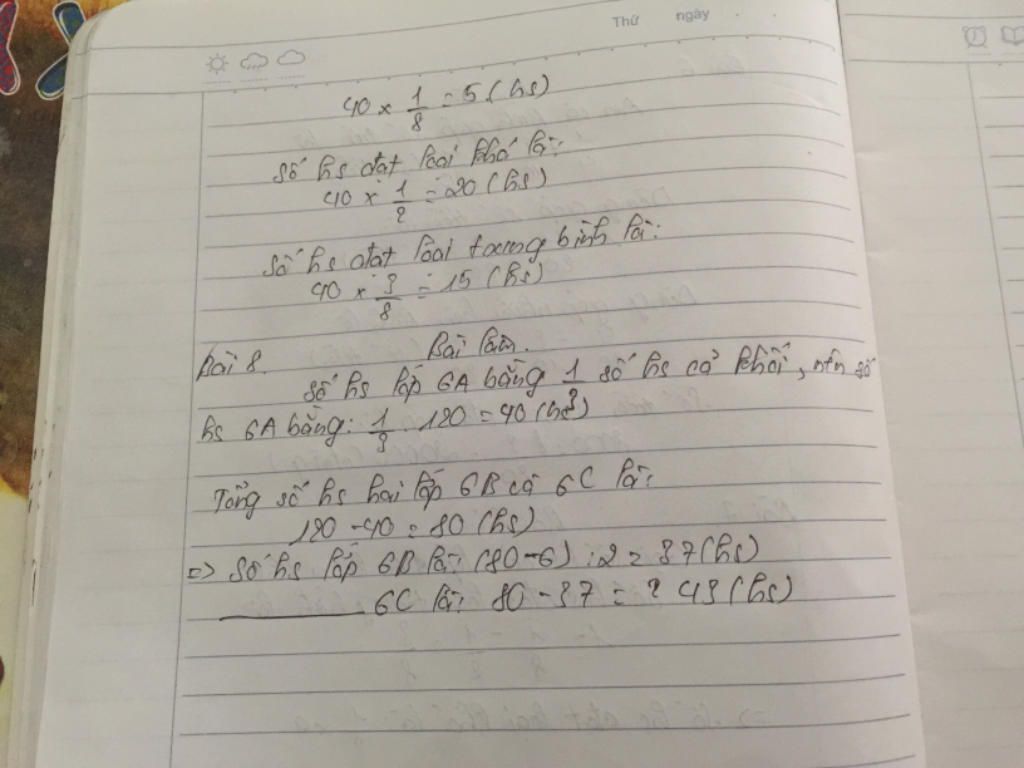 Thứ ngày
40 × 1/8 = 5 (hs)
Số hs đạt loại khá là:
40 × 1/2 = 20 (hs)
Số hs đạt loại trung bình là:
40 × 3/8 = 15 (hs)
Bài 8. Bài làm.
Số hs lớp 6A bằng 1/3 số hs cả khối, nên số
hs 6A bằng: 1/3 . 120 = 40 (hs)
Tổng số hs hai lớp 6B và 6C là:
120 - 40 = 80 (hs)
=> Số hs lớp 6B là: (80 - 6) : 2 = 37 (hs)
6C là: 80 - 37 = 43 (hs)